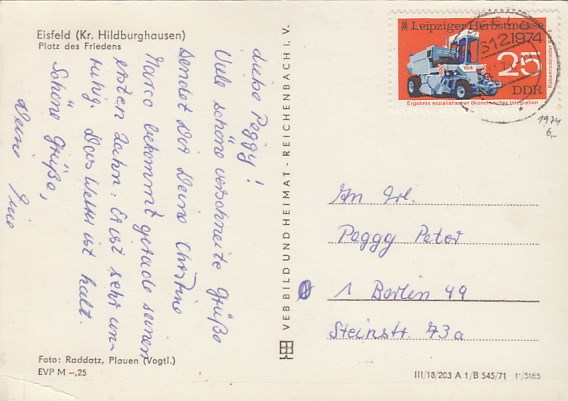 Eisfeld (Kr. Hildburghausen)
Platz des Friedens
Liebe Peggy!
Viele schöne verschneite Grüße
sendet Dir Deine Christine
Marco bekommt gerade seinen
ersten Zahn. Er ist sehr un-
ruhig. Das Wetter ist kalt.
Schöne Grüße,
Deine
Foto: Raddatz, Plauen (Vogtl.)
EVP M –,25
VEB BILD UND HEIMAT · REICHENBACH i. V.
Leipziger Herbstmesse
1974
25
DDR
Ergebnis sozialistischer ökonomischer Integration
1974
6,-
An Frl.
Peggy Peter
1 Berlin 49
Steinstr. 73a
III/18/203 A 1/B 545/71